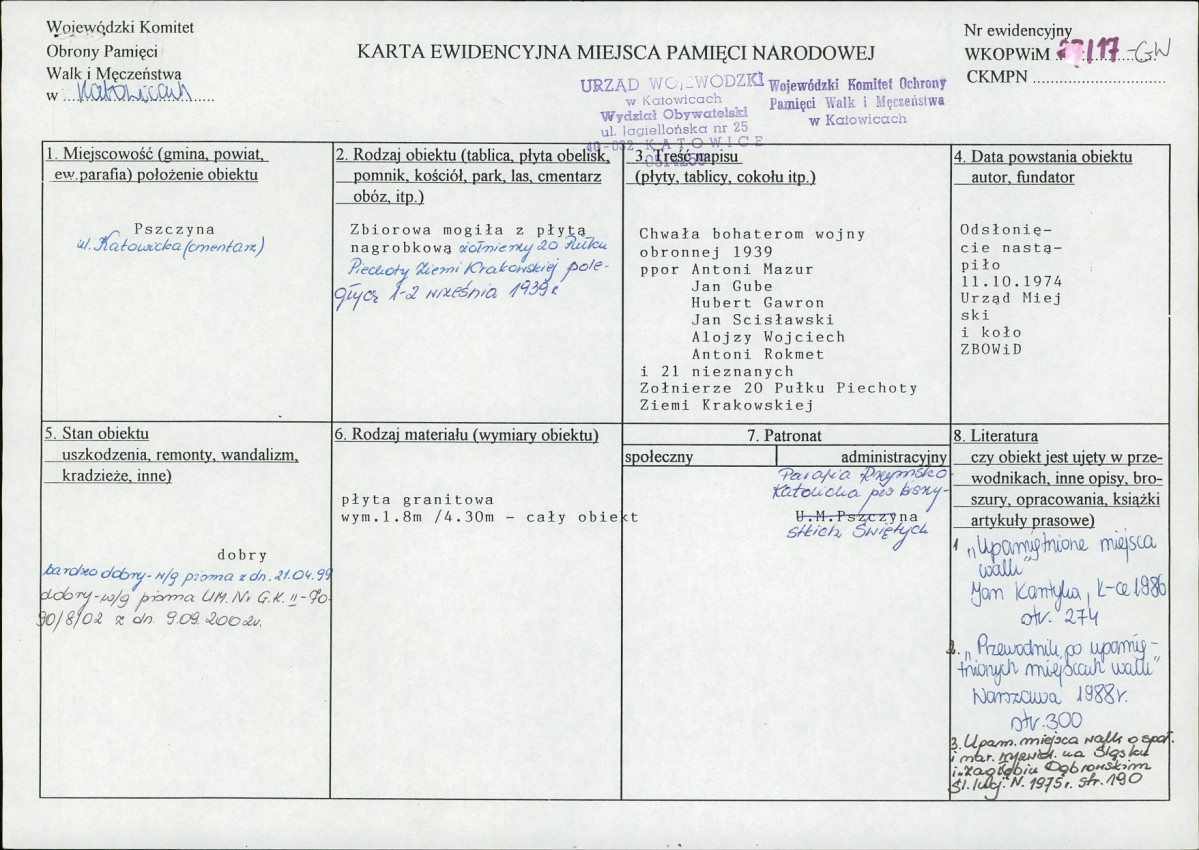 Wojewódzki Komitet
Obrony Pamięci
Walk i Męczeństwa
w Katowicach
KARTA EWIDENCYJNA MIEJSCA PAMIĘCI NARODOWEJ
Nr ewidencyjny
WKOPWiM 27/17-GW
CKMPN
URZĄD WOJEWÓDZKI
w Katowicach
Wydział Obywatelski
ul. Jagiellońska nr 25
40-032 KATOWICE
Wojewódzki Komitet Ochrony
Pamięci Walk i Męczeństwa
w Katowicach
1. Miejscowość (gmina, powiat,
ew.parafia) położenie obiektu
Pszczyna
ul. Katowicka (cmentarz)
2. Rodzaj obiektu (tablica, płyta obelisk,
pomnik, kościół, park, las, cmentarz
obóz, itp.)
Zbiorowa mogiła z płytą
nagrobkową żołnierzy 20 Pułku
Piechoty Ziemi Krakowskiej pole-
głych 1-2 września 1939 r
3. Treść napisu
(płyty, tablicy, cokołu itp.)
Chwała bohaterom wojny
obronnej 1939
ppor Antoni Mazur
Jan Gube
Hubert Gawron
Jan Scisławski
Alojzy Wojciech
Antoni Rokmet
i 21 nieznanych
Zołnierze 20 Pułku Piechoty
Ziemi Krakowskiej
4. Data powstania obiektu
autor, fundator
Odsłonię-
cie nastą-
piło
11.10.1974
Urząd Miej
ski
i koło
ZBOWiD
5. Stan obiektu
uszkodzenia, remonty, wandalizm,
kradzieże, inne)
dobry
bardzo dobry - w/g pisma z dn. 21.04.99
dobry - w/g pisma UM. Nr G.K. II-70-
90/8/02 z dn. 9.09.2002r.
6. Rodzaj materiału (wymiary obiektu)
płyta granitowa
wym.1.8m /4.30m - cały obiekt
7. Patronat
społeczny
administracyjny
Parafia Rzymsko-
Katolicka pw Wszy-
U.M.Pszczyna
stkich Świętych
8. Literatura
czy obiekt jest ujęty w prze-
wodnikach, inne opisy, bro-
szury, opracowania, książki
artykuły prasowe)
1 „Upamiętnione miejsca
walk"
Jan Kantyka, K-ce 1986
str. 274
2. „Przewodnik po upamię-
tnionych miejscach walk"
Warszawa 1988r.
str. 300
3. Upam. miejsca walk o społ.
i nar. wyzwol. na Śląsku
i Zagłębiu Dąbrowskim
Śl. Inst. N. 1975r. str. 190